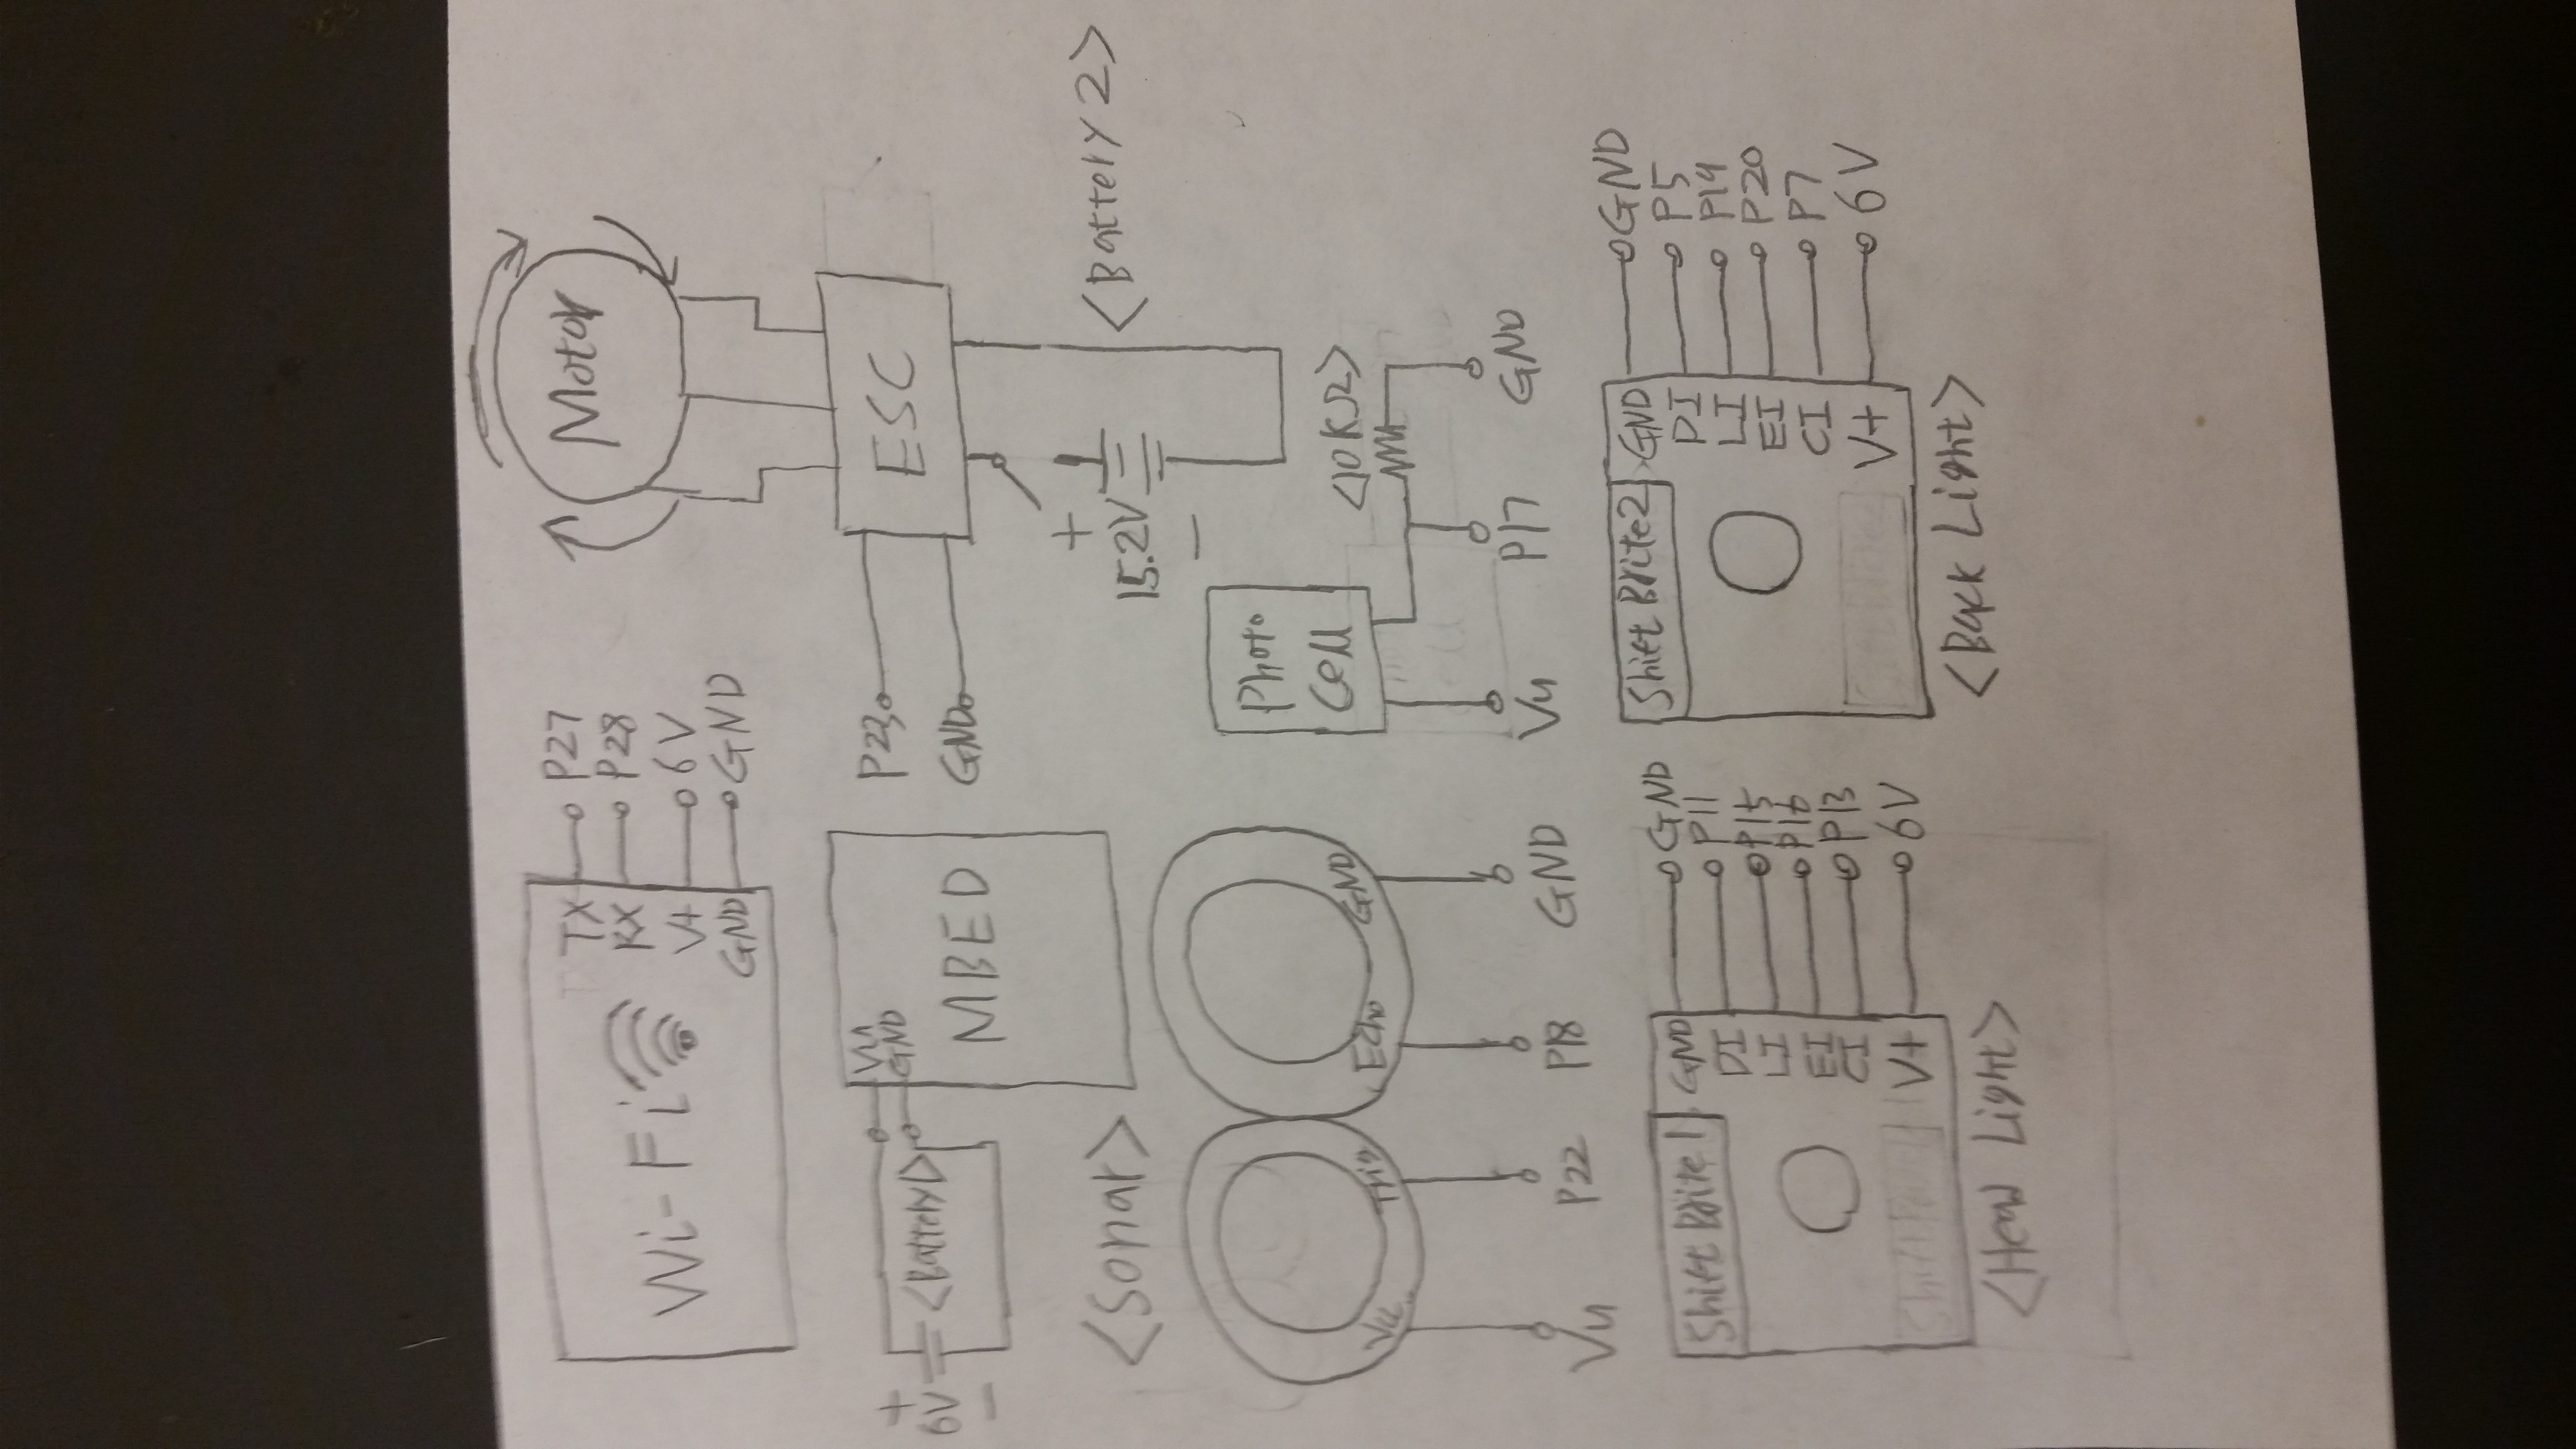 Wi-Fi
TX
P27
RX
P28
V+
6V
GND
GND
Motor
+
6V
-
<Battery1>
Vu
GND
MBED
P23
GND
ESC
+
15.2V
-
<Battery 2>
<Sonar>
Vu
Trig
Echo
GND
Vu
P22
P18
GND
Photo
Cell
<10KΩ>
Vu
P17
GND
Shift Brite 1
GND
GND
DI
P11
LI
P15
EI
P16
CI
P13
V+
6V
<Head Light>
Shift Brite2
GND
GND
DI
P5
LI
P19
EI
P20
CI
P7
V+
6V
<Back Light>